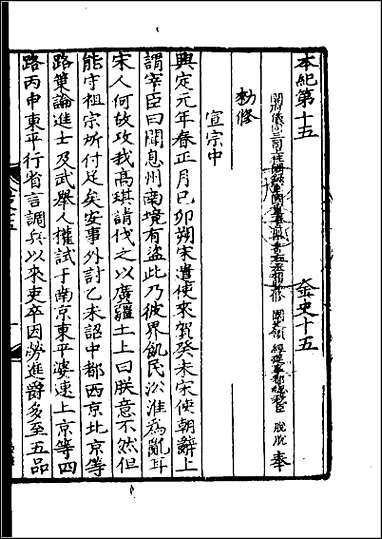 本紀第十五 金史十五
開府儀同三司上柱國錄軍國重事 監修 國史領 經筵事都總裁臣 脫脫 奉
勅修
宣宗中
興定元年春正月己卯朔宋遣使來賀癸未宋使朝辭上
謂宰臣曰聞息州南境有盜此乃彼界飢民沿淮為亂耳
宋人何故攻我高琪請伐之以廣疆土上曰朕意不然但
能守祖宗所付足矣安事外討乙未詔中都西京北京等
路策論進士及武舉人權試于南京東平婆速上京等四
路丙申東平行省言調兵以來吏卒因勞進爵多至五品